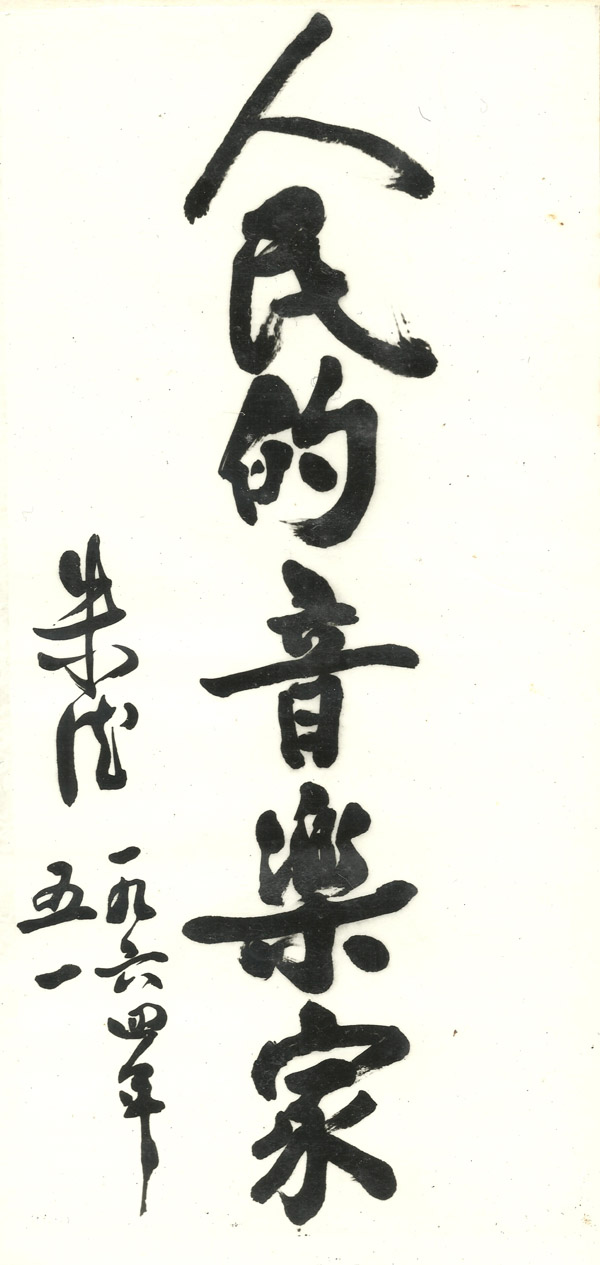 人民的音樂家
朱德
一九六四年
五一